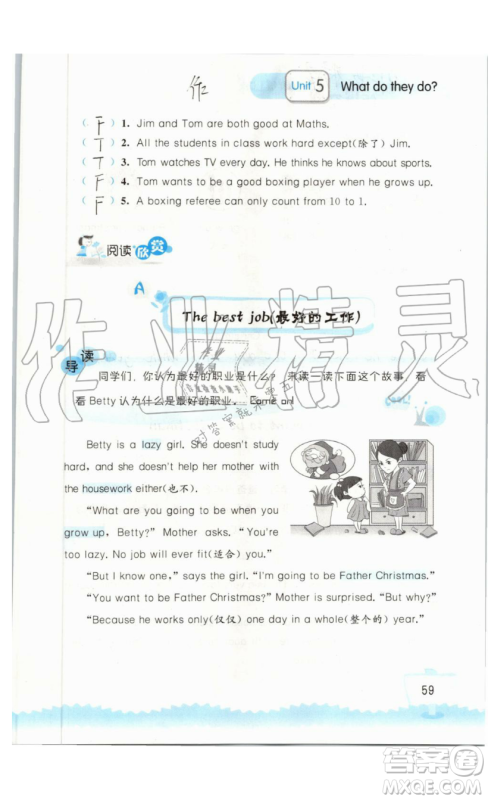 作
Unit 5 What do they do?
( F ) 1. Jim and Tom are both good at Maths.
( T ) 2. All the students in class work hard except(除了) Jim.
( T ) 3. Tom watches TV every day. He thinks he knows about sports.
( F ) 4. Tom wants to be a good boxing player when he grows up.
( F ) 5. A boxing referee can only count from 10 to 1.
阅读欣赏
A
The best job(最好的工作)
导读
同学们，你认为最好的职业是什么？来读一读下面这个故事，看
看 Betty 认为什么是最好的职业。Come on!
Betty is a lazy girl. She doesn't study
hard, and she doesn't help her mother with
the housework either(也不).
"What are you going to be when you
grow up, Betty?" Mother asks. "You're
too lazy. No job will fit(适合) you."
"But I know one," says the girl. "I'm going to be Father Christmas."
"You want to be Father Christmas?" Mother is surprised. "But why?"
"Because he works only(仅仅) one day in a whole(整个的) year."
59
作业精灵
答案圈
MXQE.COM